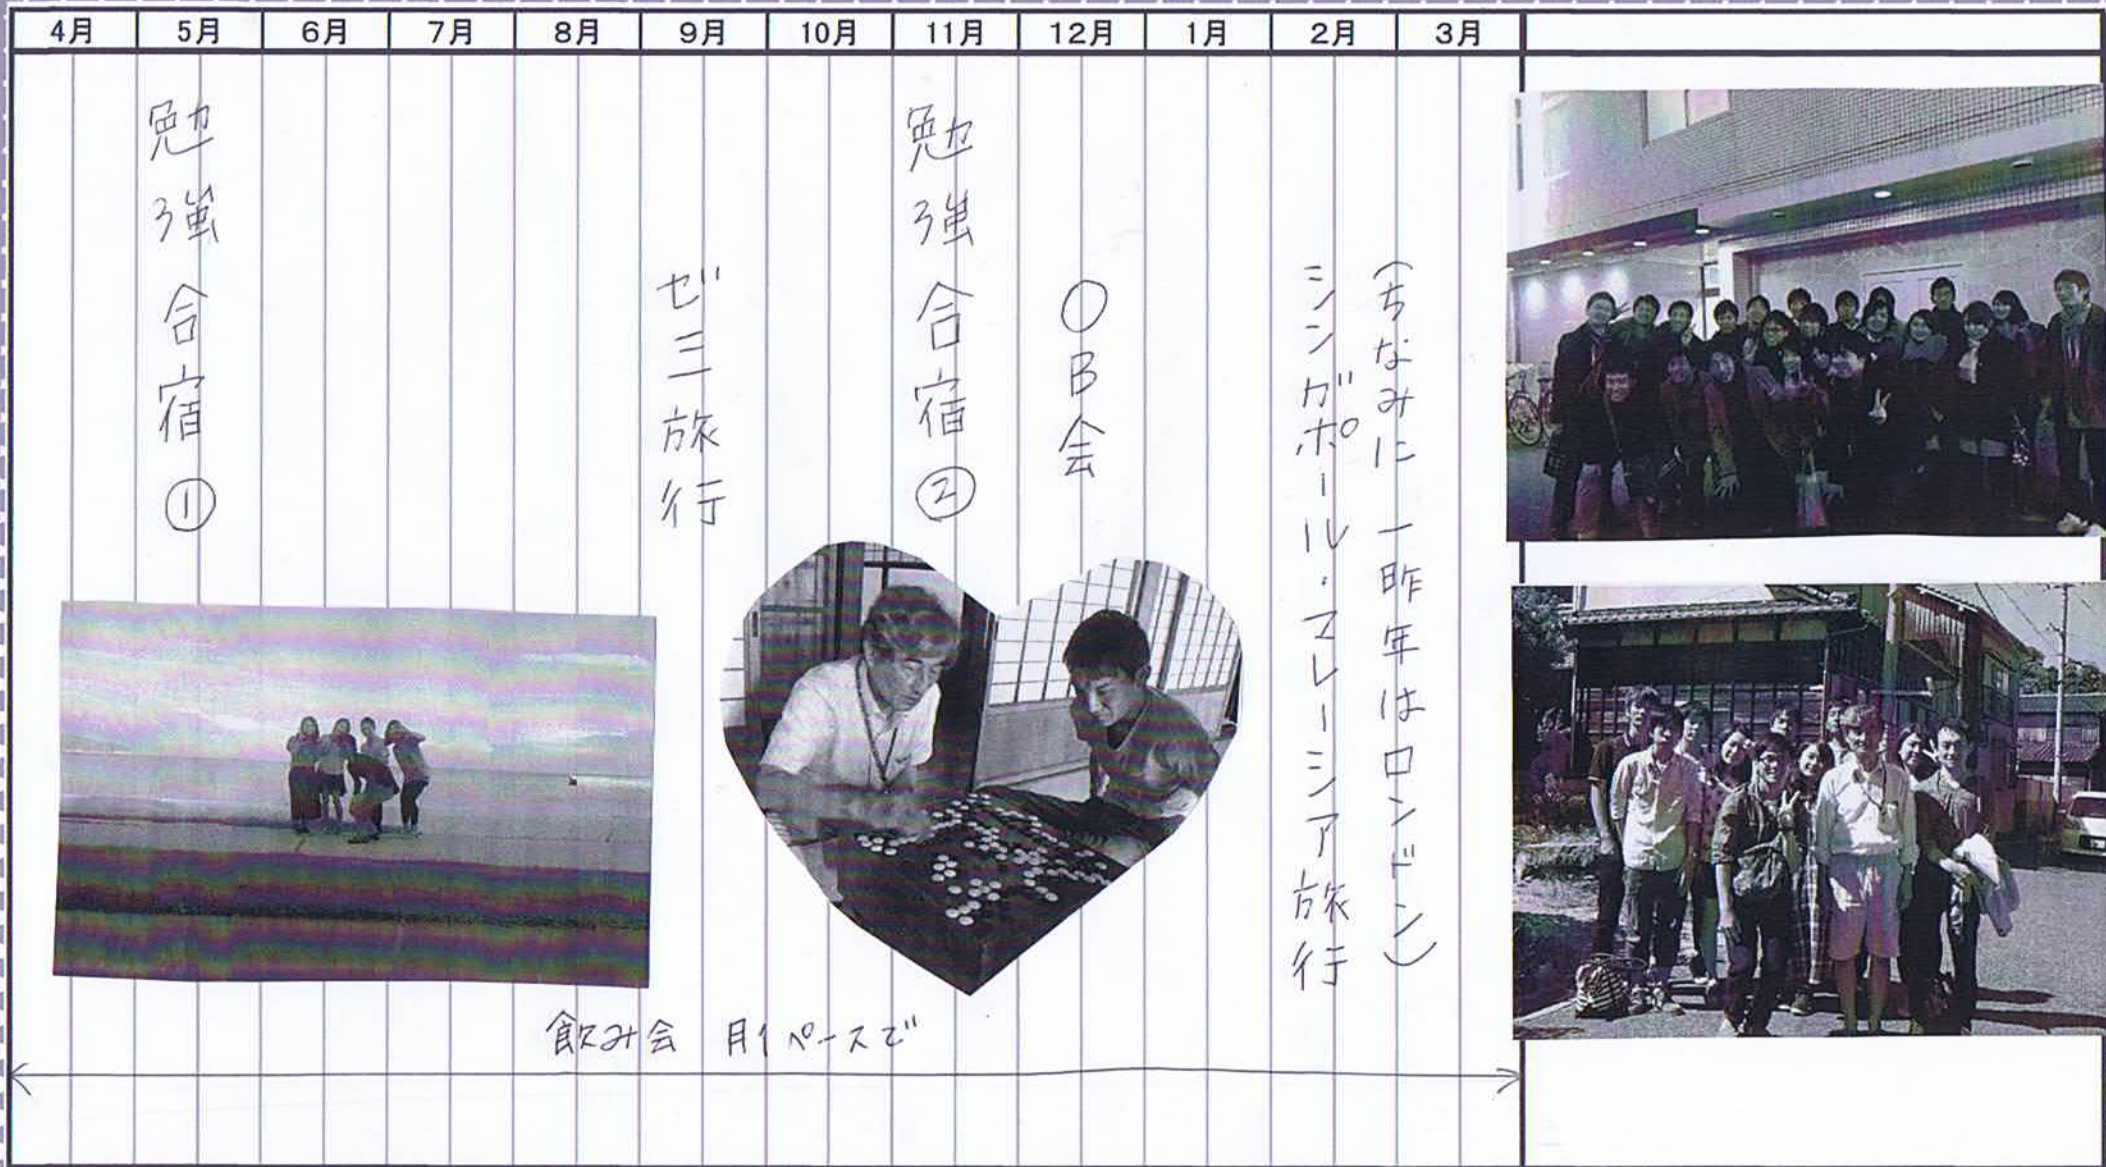 4月 5月 6月 7月 8月 9月 10月 11月 12月 1月 2月 3月
勉強合宿①
ゼミ旅行
勉強合宿②
OB会
シンガポール・マレーシア旅行
(ちなみに一昨年はロンドン)
飲み会 月1ペースで